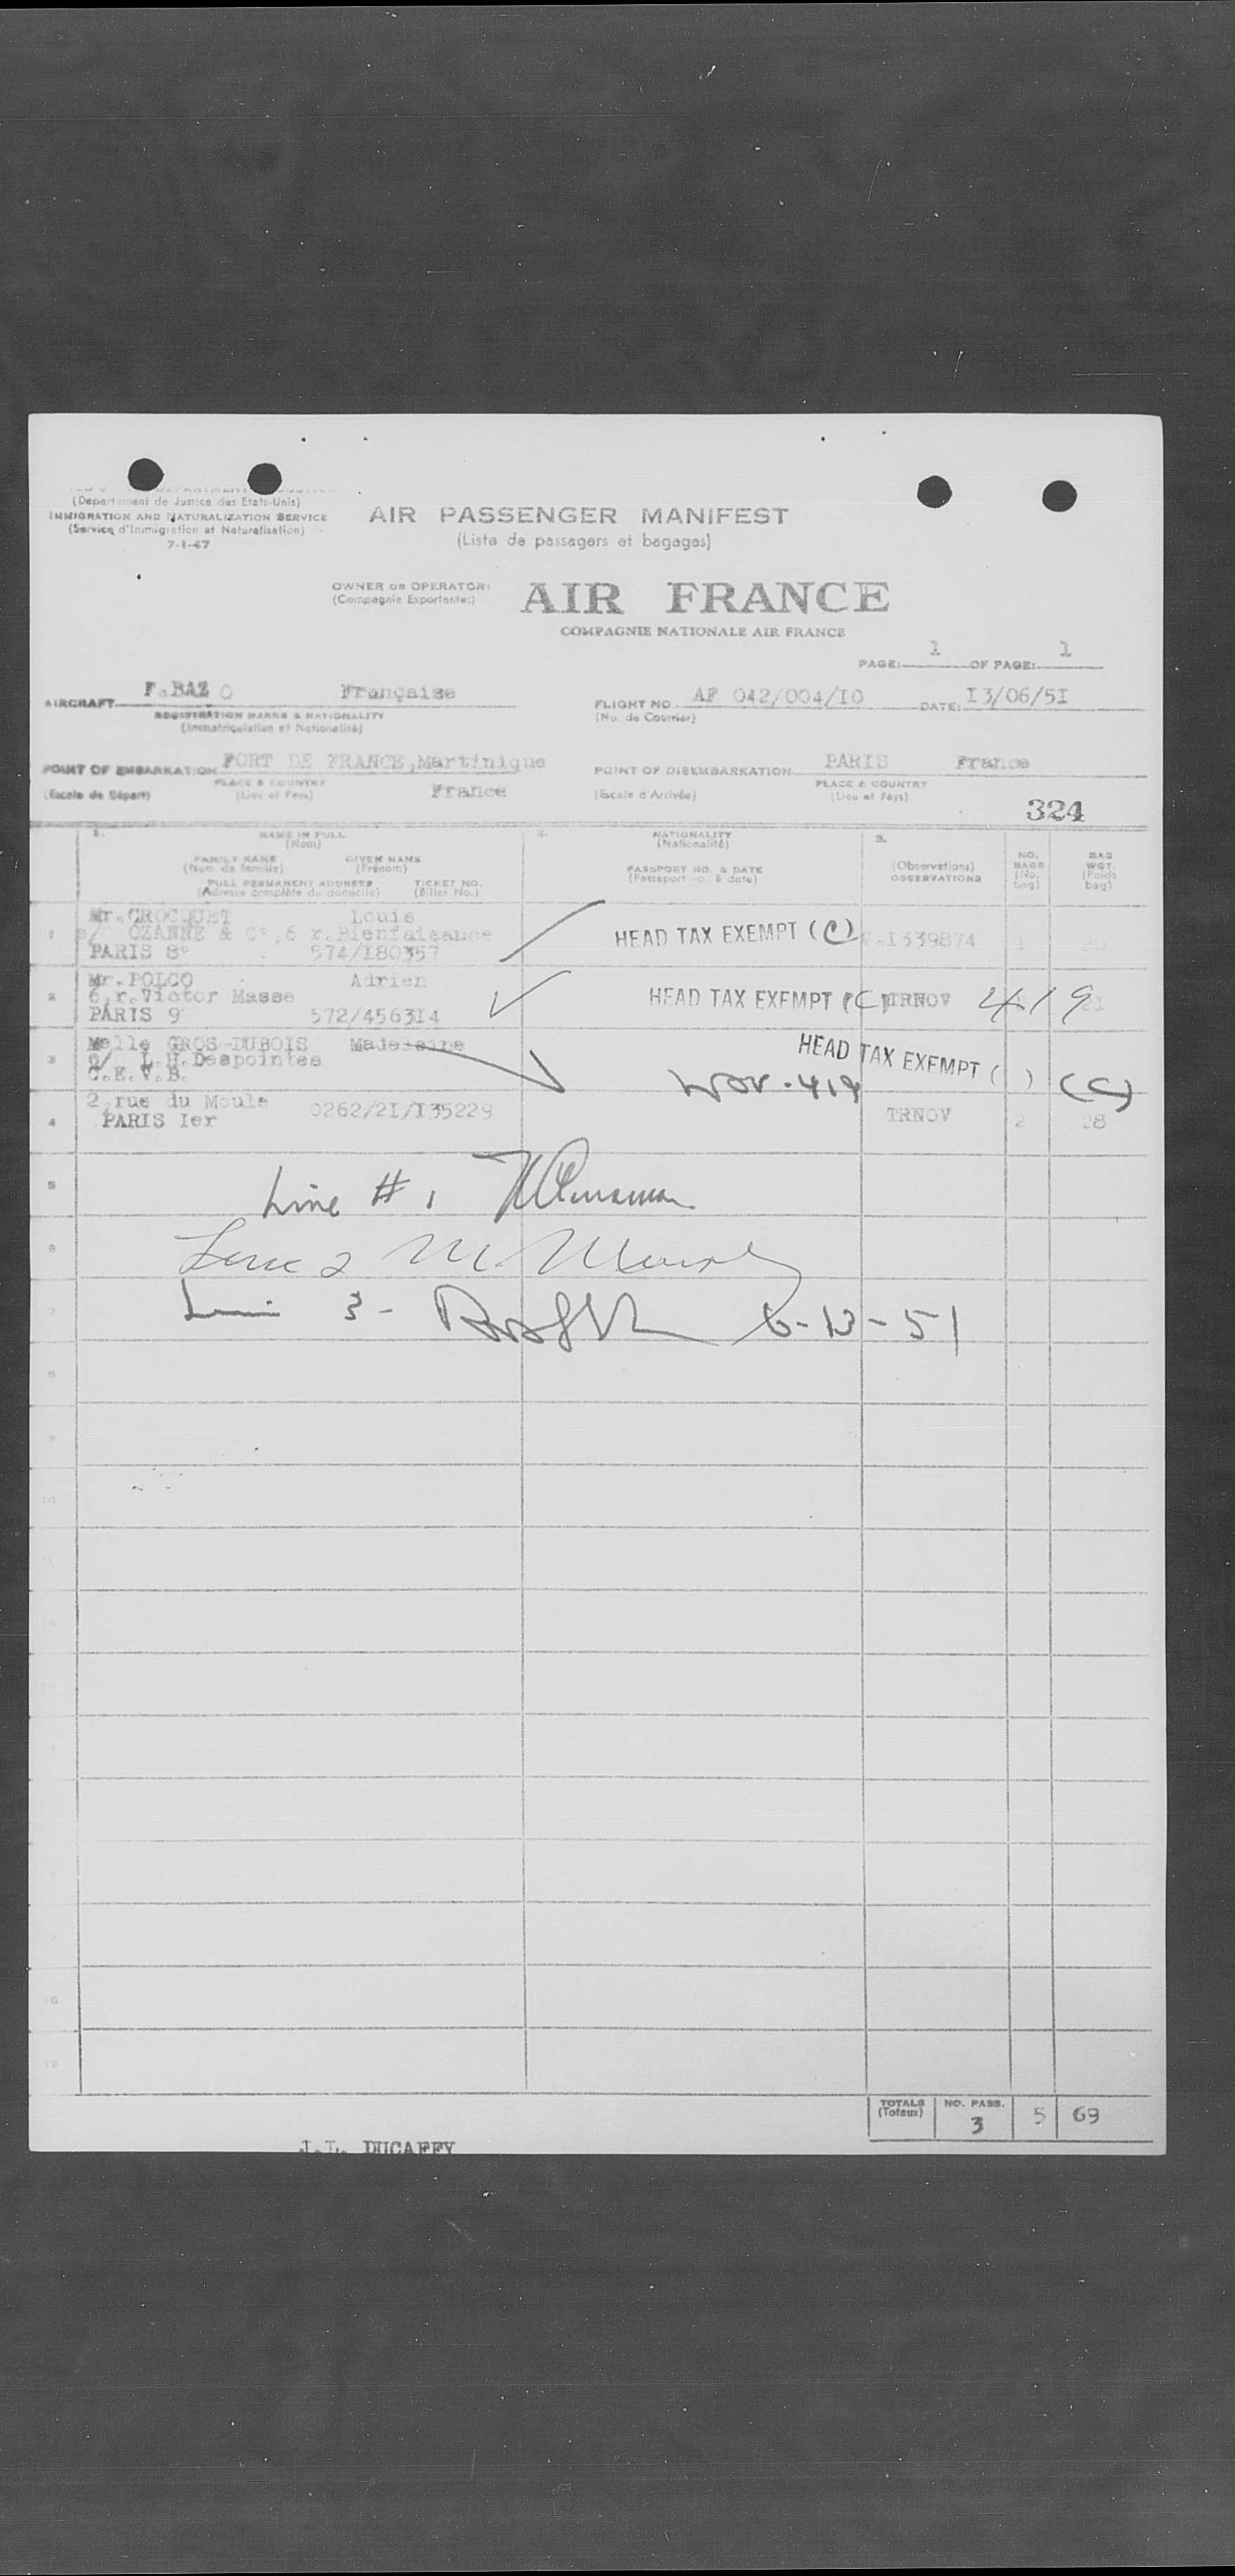 (Departement de Justice des Etats-Unis)
IMMIGRATION AND NATURALIZATION SERVICE
(Service d'Immigration et Naturalisation)
7-1-47
AIR PASSENGER MANIFEST
(Liste de passagers et bagages)
OWNER OR OPERATOR:
(Compagnie Exportante:)
AIR FRANCE
COMPAGNIE NATIONALE AIR FRANCE
PAGE: 1 OF PAGE: 1
AIRCRAFT F.BAZ O Française
REGISTRATION MARKS & NATIONALITY
(Immatriculation et Nationalité)
FLIGHT NO. AF 042/004/I0 DATE: I3/06/5I
(No. de Courrier)
POINT OF EMBARKATION FORT DE FRANCE,Martinique
PLACE & COUNTRY
(Escale de Départ) (Lieu et Pays) France
POINT OF DISEMBARKATION PARIS France
PLACE & COUNTRY
(Escale d'Arrivée) (Lieu et Pays)
324
1. NAME IN FULL
(Nom)
FAMILY NAME GIVEN NAME
(Nom de famille) (Prénom)
FULL PERMANENT ADDRESS TICKET NO.
(Adresse complète du domicile) (Billet No.)
2. NATIONALITY
(Nationalité)
PASSPORT NO. & DATE
(Passeport no. & date)
3.
(Observations)
OBSERVATIONS
NO. BAGS
(No. bag)
BAG WGT.
(Poids bag)
1 Mr.CROCQUET Louis
OZANNE & C°,6 r.Bienfaisance
PARIS 8° 574/I80357
HEAD TAX EXEMPT (C) I339874 1
2 Mr.POLCO Adrien
6,r.Victor Masse
PARIS 9° 572/4563I4
HEAD TAX EXEMPT (C) TRNOV 419 21
3 Melle GROS-DUBOIS Madeleine
L.H.Despointes
C.E.V.B.
HEAD TAX EXEMPT ( ) (C)
419
4 2,rue du Moule
PARIS Ier 0262/2I/I35229
TRNOV 2 28
5 Line # 1
6 Line 2
7 Line 3 - 6-13-51
8
9
10
18
19
TOTALS
(Totaux)
NO. PASS.
3 5 69
J.L. DUCAFFY